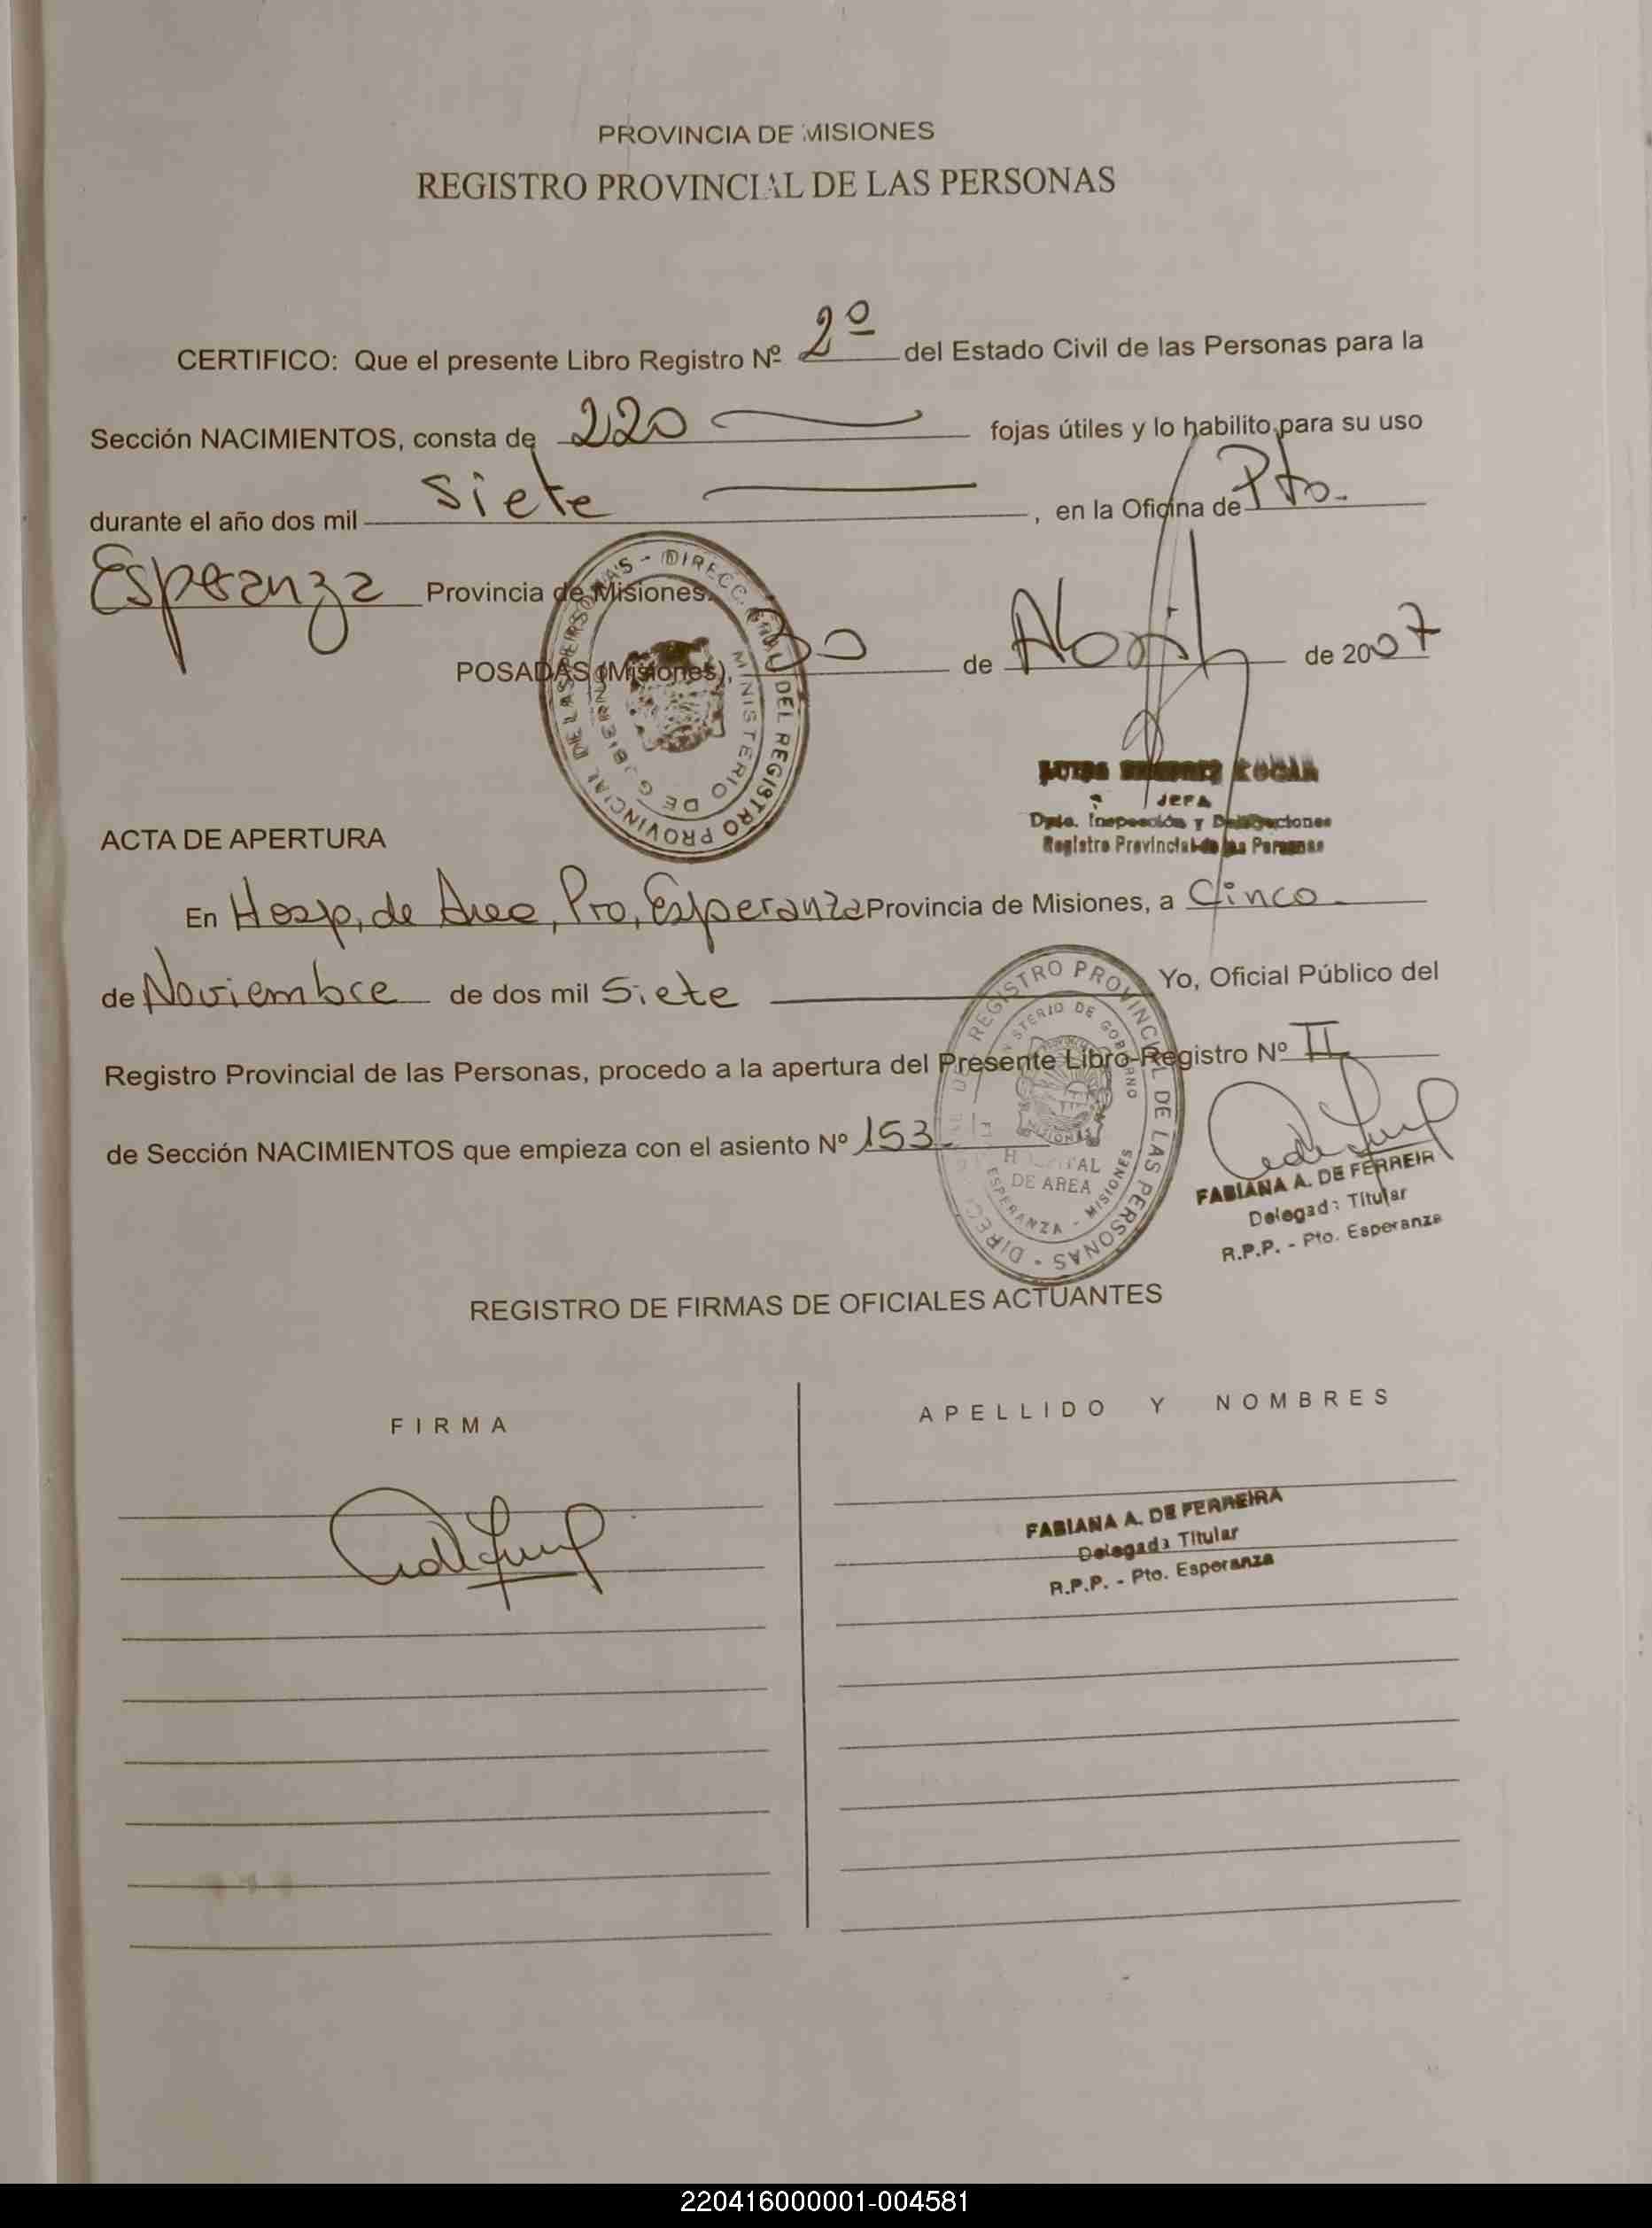 PROVINCIA DE MISIONES
REGISTRO PROVINCIAL DE LAS PERSONAS
CERTIFICO: Que el presente Libro Registro Nº 2º del Estado Civil de las Personas para la
Sección NACIMIENTOS, consta de 220 fojas útiles y lo habilito para su uso
durante el año dos mil siete, en la Oficina de Pto.
Esperanza Provincia de Misiones.
POSADAS (Misiones), 30 de Abril de 2007
DIRECC. GRAL DEL REGISTRO PROVINCIAL DE LAS PERSONAS -
MINISTERIO DE GOBIERNO
KOGAN
JEFA
Dpto. Inspección y Delegaciones
Registro Provincial de las Personas
ACTA DE APERTURA
En Hosp. de Area, Pto, Esperanza Provincia de Misiones, a Cinco
de Noviembre de dos mil Siete Yo, Oficial Público del
Registro Provincial de las Personas, procedo a la apertura del Presente Libro-Registro Nº II
de Sección NACIMIENTOS que empieza con el asiento Nº 153
REGISTRO PROVINCIAL DE LAS PERSONAS -
DE GOBIERNO
HOSPITAL
DE AREA
ESPERANZA - MISIONES
FABIANA A. DE FERREIR
Delegada Titular
R.P.P. - Pto. Esperanza
REGISTRO DE FIRMAS DE OFICIALES ACTUANTES
FIRMA
APELLIDO Y NOMBRES
FABIANA A. DE FERREIRA
Delegada Titular
R.P.P. - Pto. Esperanza
220416000001-004581